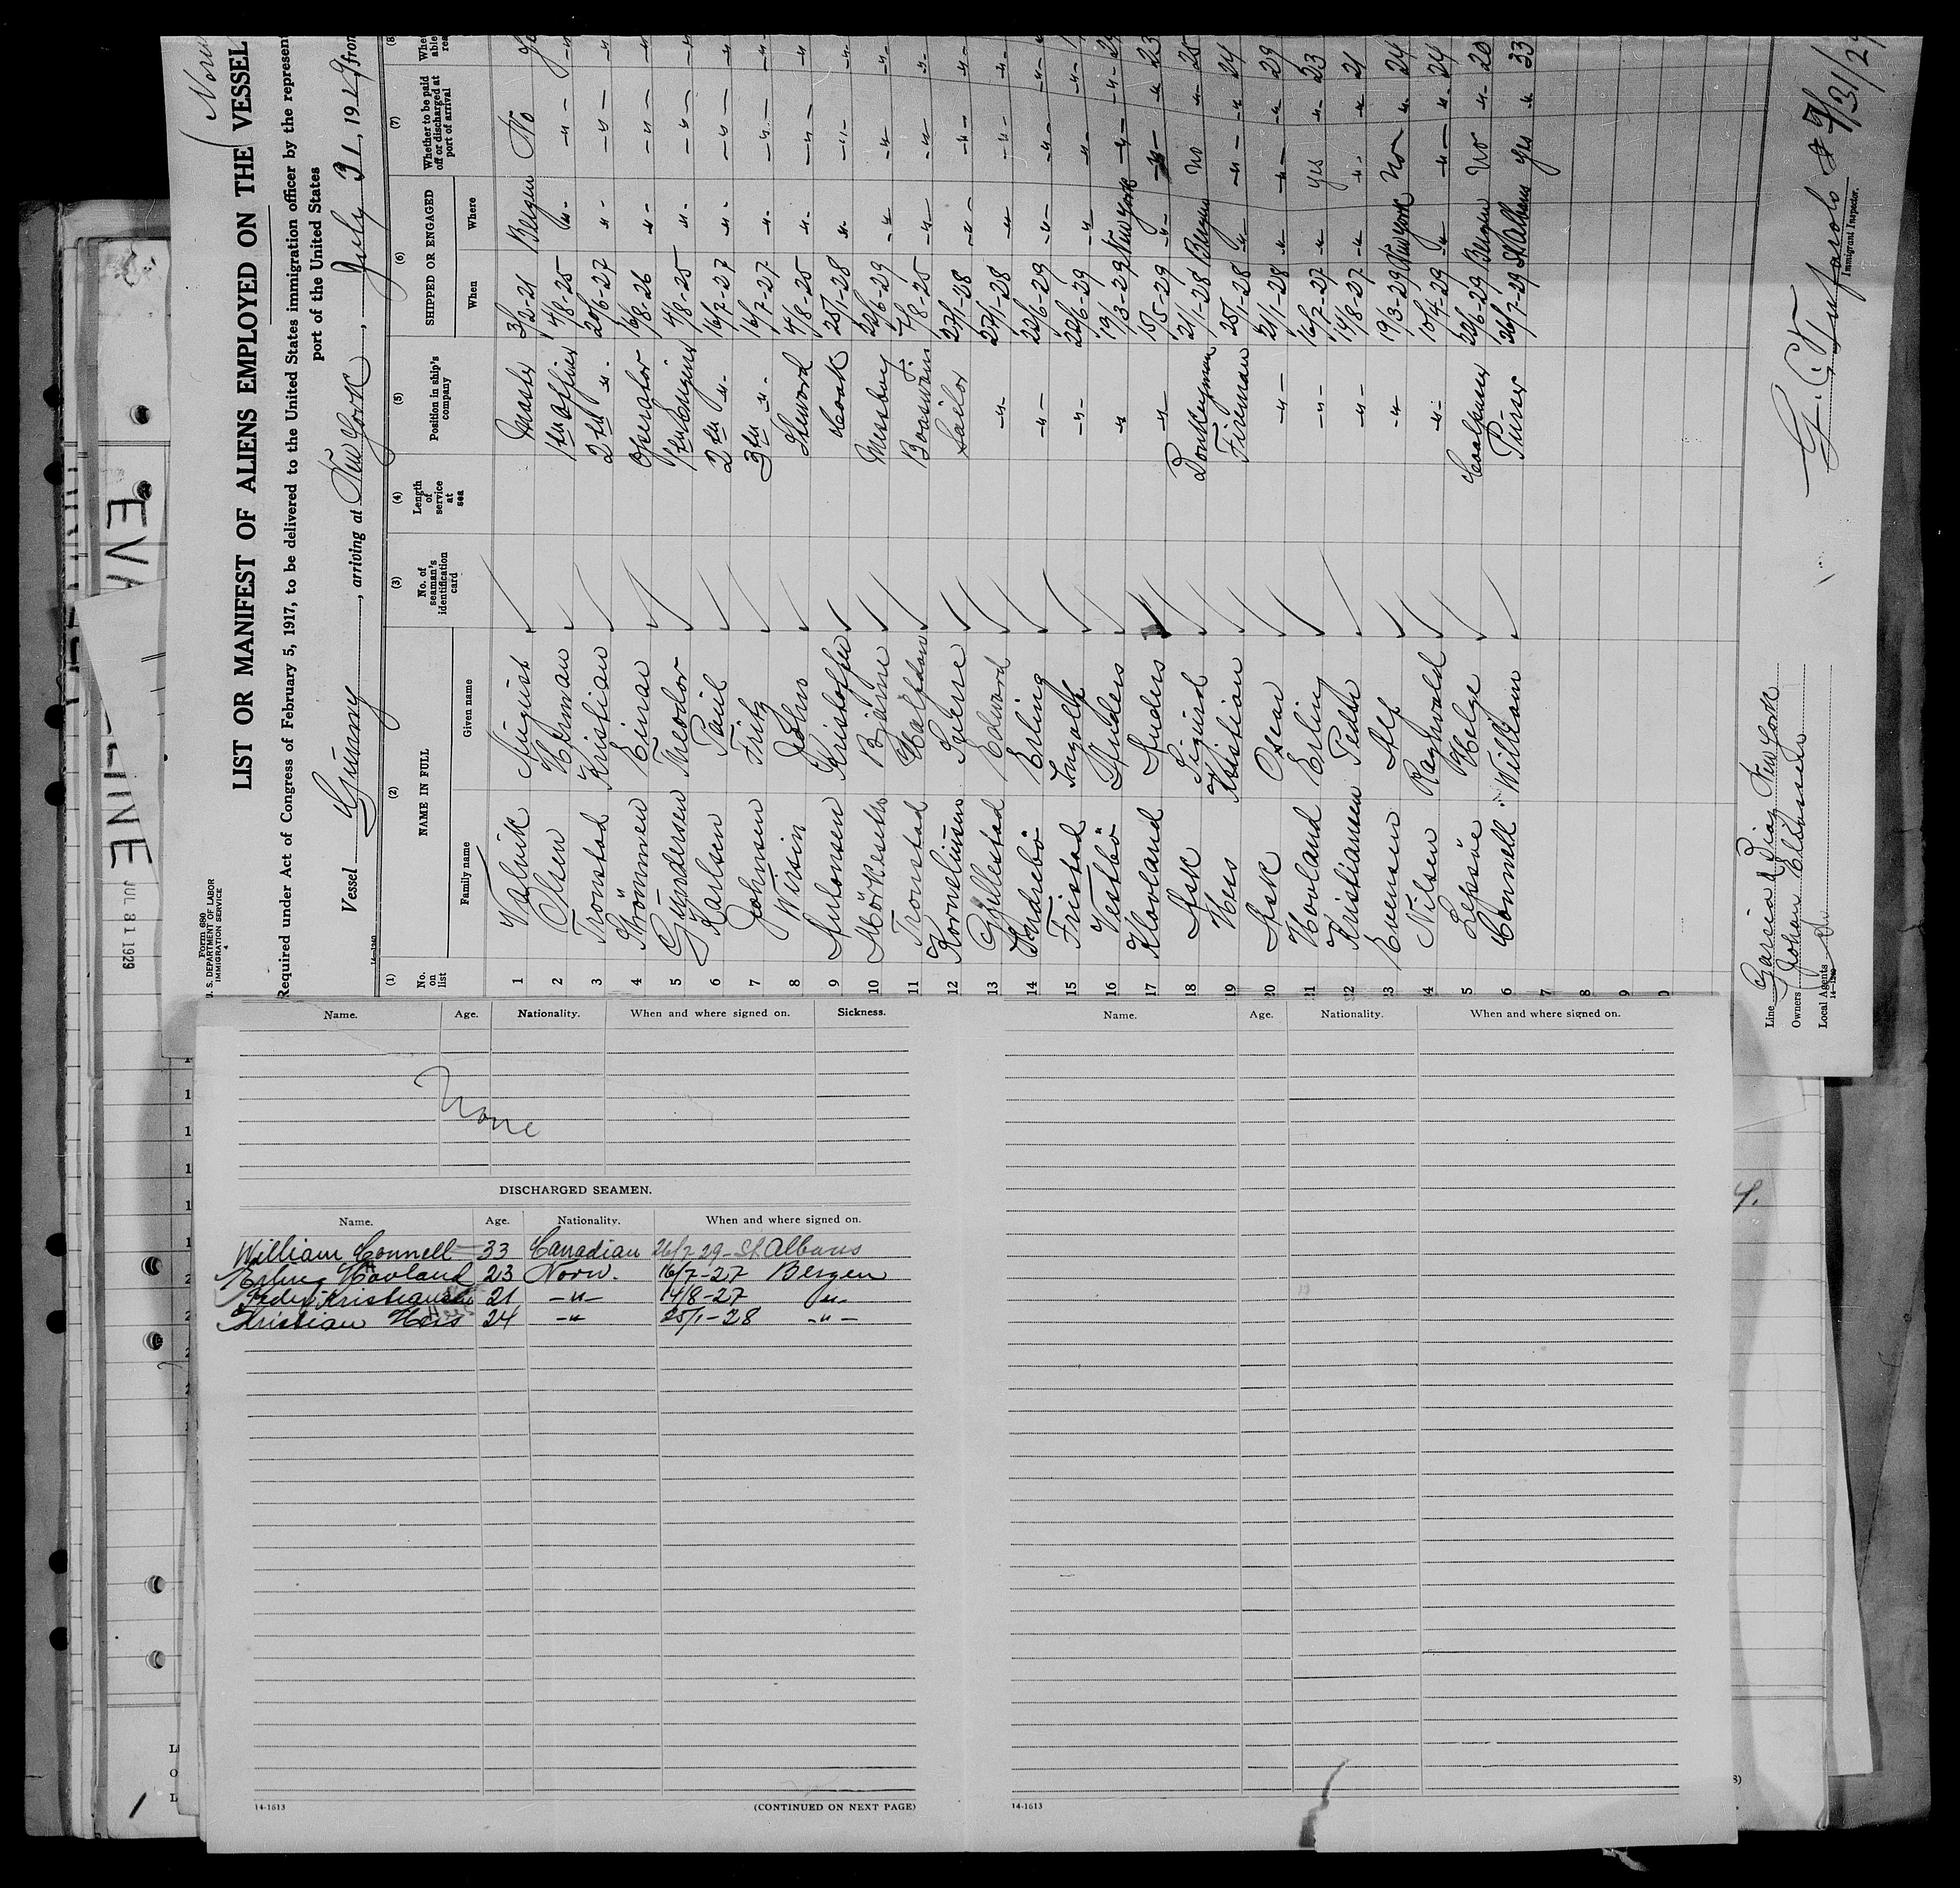 Form 680
U. S. DEPARTMENT OF LABOR
IMMIGRATION SERVICE
JUL 31 1929
LIST OR MANIFEST OF ALIENS EMPLOYED ON THE VESSEL
Required under Act of Congress of February 5, 1917, to be delivered to the United States immigration officer by the represen
port of the United States
Vessel Gunny, arriving at New York, July 31, 192
(1) (2) (3) (4) (5) (6) (7) (8)
No. on list NAME IN FULL No. of seaman's identification card Length of service at sea Position in ship's company SHIPPED OR ENGAGED Whether to be paid off or discharged at port of arrival
Family name Given name When Where
1 Valvik August Master 3/2-21 Bergen No
2 Olsen Herman 1th Officer 4/8-25 -"- -"-
3 Tronstad Kristian 2th -"- 20/6-27 -"- -"-
4 Strömmen Einar Operator 16/8-26 -"- -"-
5 Gundersen Theodor 1th Engineer 4/8-25 -"- -"-
6 Karlsen Paul 2th -"- 16/7-27 -"- -"-
7 Johnsen Fritz 3th -"- 16/7-27 -"- -"-
8 Wirsin John Steword 4/8-25 -"- -"-
9 Antonsen Kristoffer Cook 25/1-28 -"- -"-
10 Mörkeseth Bjarne Messboy 22/6-29 -"- -"-
11 Tronstad Halfdan Boaswain 4/8-25 -"- -"-
12 Korneliussen Sverre Sailor 27/1-28 -"- -"-
13 Gjellestad Edward -"- 27/1-28 -"- -"-
14 Indrebö Erling -"- 22/6-29 -"- -"-
15 Fristad Ingalf -"- 22/6-29 -"- -"-
16 Vestbö -"- 19/3-29 New York -"-
17 Klovland Anders -"- 15/5-29 -"- -"- 23
18 Ask Sigurd Donkeyman 21/1-28 Bergen No -"- 25
19 Hess Kristian Fireman 25/1-28 -"- -"- -"- 24
20 Ask Oscar -"- 21/1-28 -"- -"- -"- 29
21 Hovland Erling -"- 16/7-27 -"- yes -"- 23
22 Kristiansen Peder -"- 14/8-27 -"- -"- -"- 21
23 Evensen Alf -"- 19/3-29 New York No -"- 24
24 Nilsen Ragnvald -"- 10/4-29 -"- -"- -"- 24
5 Lepsöe Helge Coalpasser 22/6-29 Bergen No -"- 20
6 Connell William Purser 26/7-29 St Albans yes -"- 33
7
8
9
0
Line Garcia & Diaz New York
Owners Johan Eliassen
Local Agents
Immigrant Inspector.
7/31/29
Name. Age. Nationality. When and where signed on. Sickness.
None
DISCHARGED SEAMEN.
Name. Age. Nationality. When and where signed on.
William Connell 33 Canadian 26/7-29 - St Albans
Erling Hovland 23 Norw. 16/7-27 Bergen
Peder Kristiansen 21 -"- 14/8-27 -"-
Kristian Hess 24 -"- 25/1-28 -"-
14-1613 (CONTINUED ON NEXT PAGE)
Name. Age. Nationality. When and where signed on.
14-1613